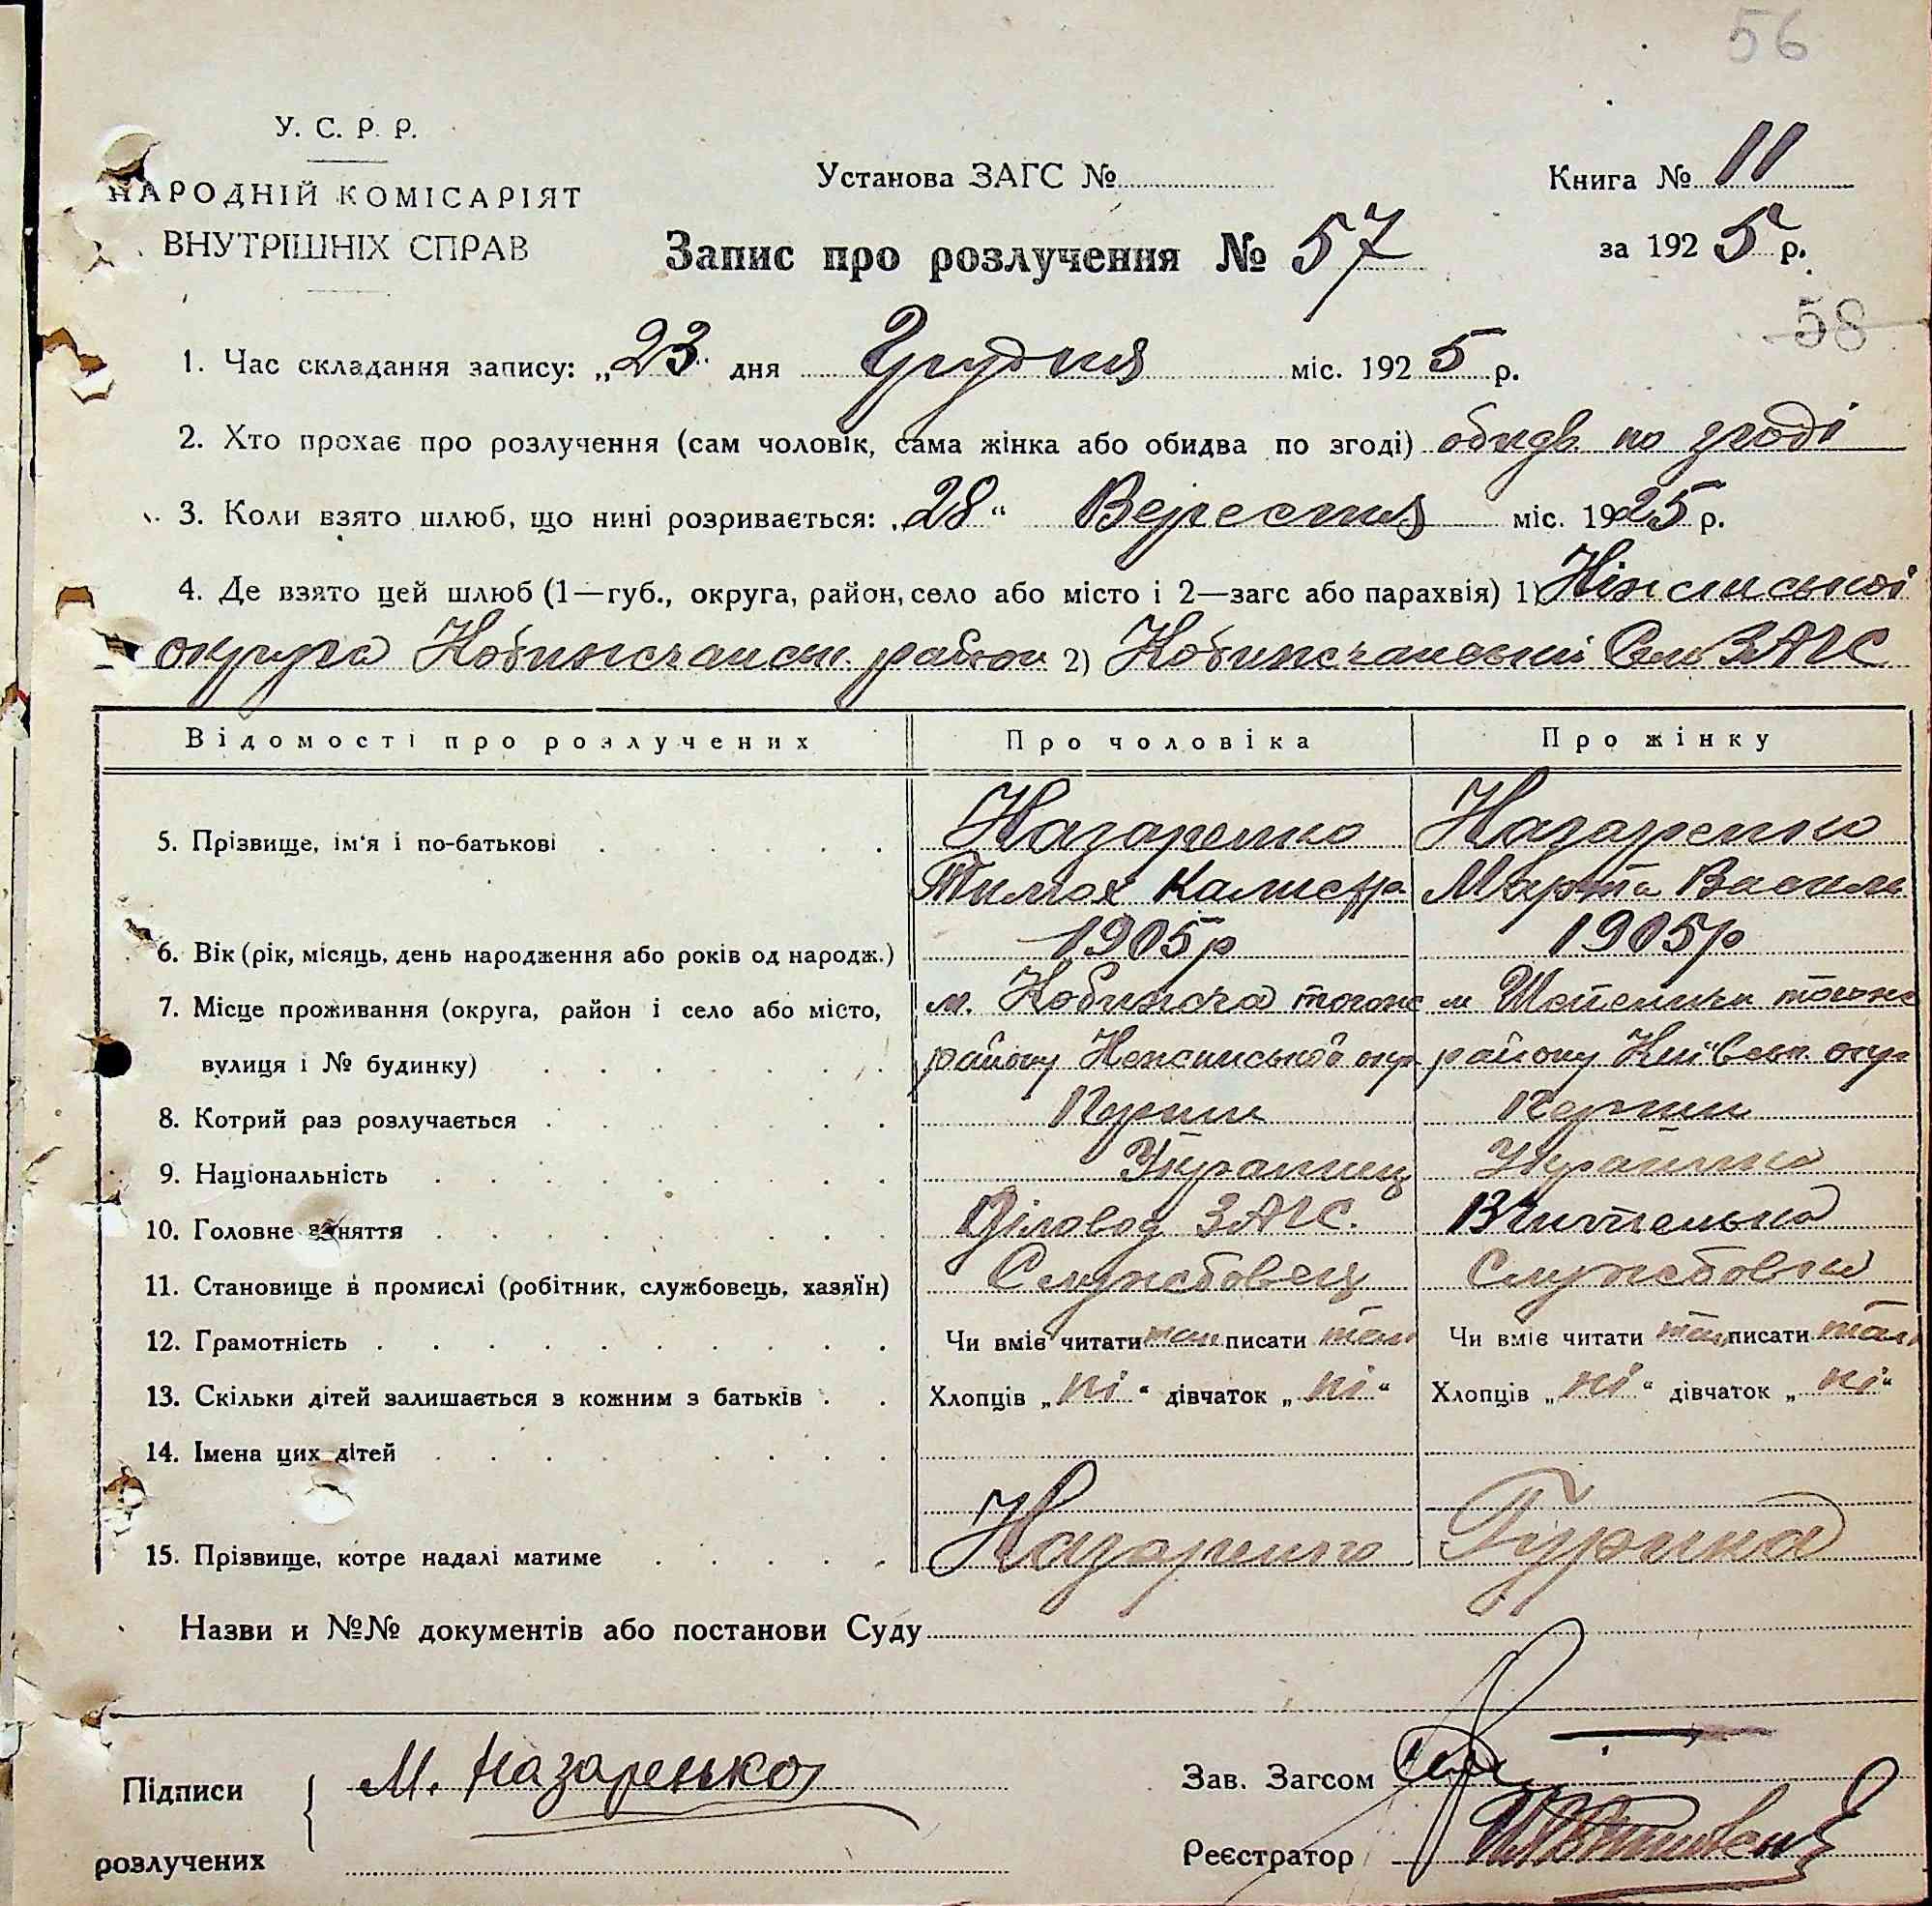 56
У. С. Р. Р.
НАРОДНІЙ КОМІСАРІЯТ
ВНУТРІШНІХ СПРАВ
Установа ЗАГС №
Книга № 11
за 1925 р.
Запис про розлучення № 57
58
1. Час складання запису: „23" дня Грудня міс. 1925 р.
2. Хто прохає про розлучення (сам чоловік, сама жінка або обидва по згоді) обидв. по згоді
3. Коли взято шлюб, що нині розривається: „28" Вересня міс. 1925 р.
4. Де взято цей шлюб (1—губ., округа, район, село або місто і 2—загс або парахвія) 1) Ніжинської
округа Кобижчанськ. район 2) Кобижчанський Сел ЗАГС
Відомості про розлучених Про чоловіка Про жінку
5. Прізвище, ім'я і по-батькові Назаренко Назаренко
Тимох Калистра Марта Василь
6. Вік (рік, місяць, день народження або років од народж.) 1905р 1905р
7. Місце проживання (округа, район і село або місто, м. Кобижча тогож м тогож
вулиця і № будинку) району Неженської окр району Київськ окр
8. Котрий раз розлучається Перши Перши
9. Національність Українец Українка
10. Головне заняття Діловод ЗАГС. Вчителька
11. Становище в промислі (робітник, службовець, хазяїн) Службовец Службовка
12. Грамотність Чи вміє читати так писати так Чи вміє читати так писати так
13. Скільки дітей залишається з кожним з батьків Хлопців „ні" дівчаток „ні" Хлопців „ні" дівчаток „ні"
14. Імена цих дітей
15. Прізвище, котре надалі матиме Назаренко Гурина
Назви и №№ документів або постанови Суду
Підписи М. Назаренко Зав. Загсом
розлучених Реєстратор